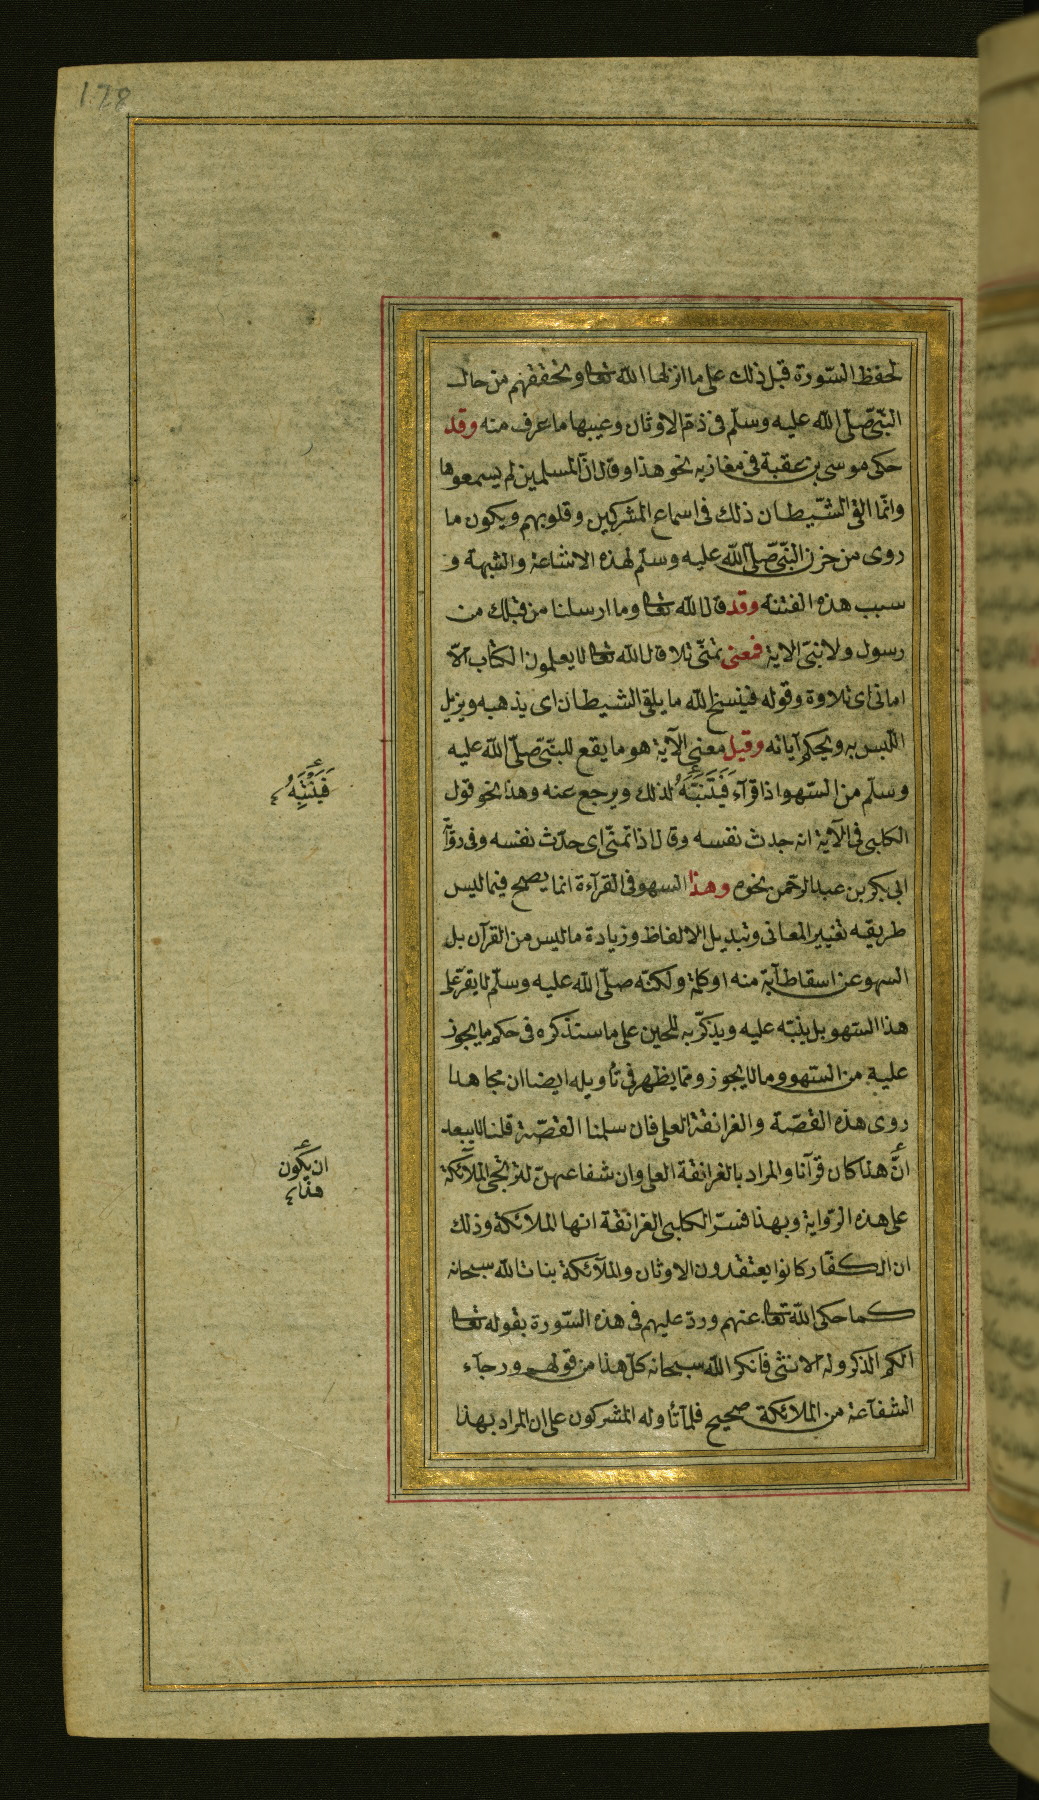 128
لحفظ السّورة قبل ذلك على ما انزلها الله تعا وتحققهم من حال
النّبىّ صلّى الله عليه وسلّم فى ذمّ الاوثان وعيبها ما عرف منه وقد
حكى موسى بن عقبة فى مغازيه نحو هذا وقال انّ المسلمين لم يسمعوها
وانّما القى الشّيطان ذلك فى اسماع المشركين وقلوبهم ويكون ما
روى من حزن النّبىّ صلّى الله عليه وسلّم لهذه الاشاعة والشبهة و
سبب هذه الفتنة وقد قال الله تعا وما ارسلنا من قبلك من
رسول ولا نبىّ الاية فمعنى تمنّى تلا قال الله تعا لا يعلمون الكتاب الاّ
امانى اى تلاوة وقوله فينسخ الله ما يلقى الشيطان اى يذهبه ويزيل
اللّبس به ويحكم آياته وقيل معنى الآية هو ما يقع للنّبىّ صلّى الله عليه
وسلّم من السّهو اذا قرآء فَيَتَنَبَّهُ لذلك ويرجع عنه وهذا نحو قول
الكلبى فى الآية انه حدث نفسه وقال اذا تمنّى اى حدّث نفسه وفى رواية
ابى بكر بن عبد الرّحمن نحوه وهذا السهو فى القرآءة انما يصحّ فيما ليس
طريقه تغيير المعانى وتبديل الالفاظ وزيادة ما ليس من القرآن بل
السهو عن اسقاط آية منه او كلمة ولكنّه صلّى الله عليه وسلّم لا يقرّ على
هذا السّهو بل ينبّه عليه ويذكّر به للحين على ما سنذكره فى حكم ما يجوز
عليه من السّهو وما لا يجوز وممّا يظهر فى تأويله ايضا ان مجاهدا
روى هذه القصّة والغرانقة العلى فان سلمنا القصّة قلنا لا يبعد
انّ هذا كان قرآنا والمراد بالغرانقة العلى وان شفاعتهنّ لترتجى الملآئكة
على هذه الرّواية وبهذا فسّر الكلبى الغرانقة انها الملائكة وذلك
ان الكفّار كانوا يعتقدون الاوثان والملآئكة بنات الله سبحانه
كما حكى الله تعا عنهم وردّ عليهم فى هذه السّورة بقوله تعا
الكم الذكر وله الانثى فانكر الله سبحانه كلّ هذا من قولهم ورجآء
الشفآعة من الملائكة صحيح فلمآ تأوله المشركون على ان المراد بهذا
فَيَتَنَبَّهُ
ان يكون
هذا